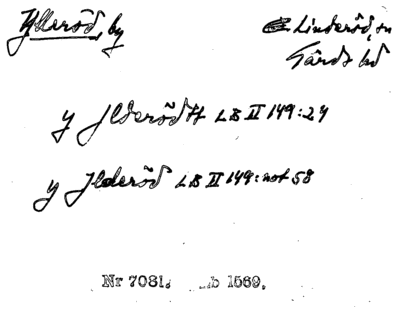 Ylleröd, by
Linderöd, sn
Gärds hd
y Jlderödtt LB II 149:24
y Jlderöd LB II 149: not 58
Nr 7081. b 1569.